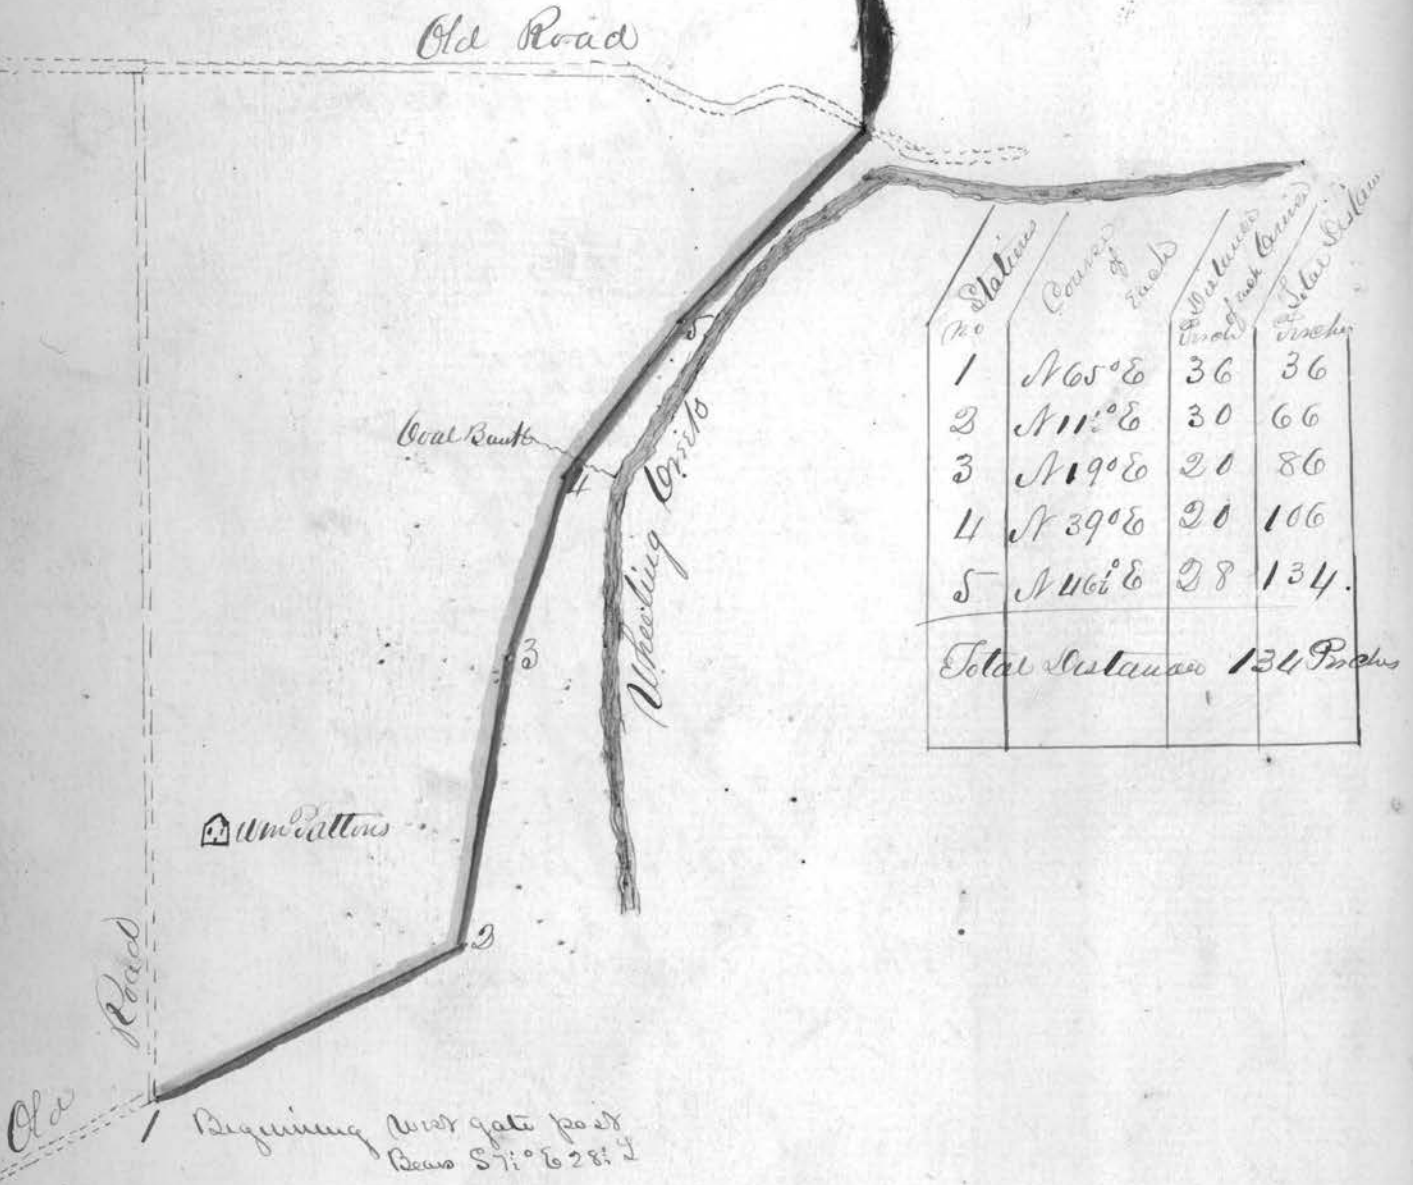 Old Road
Stations
Courses of Each
Distances of each Course
Total Distan
No Perch Perches
1 N 65° E 36 36
2 N 11½° E 30 66
3 N 19° E 20 86
4 N 39° E 20 106
5 N 46½° E 28 134.
Total Distance 134 Perches
5
Coal Bank
4
Wheeling Creek
3
Wm Pattons
2
Road
Old
1
Beginning West gate post
Bears S 7½° E 28½ L